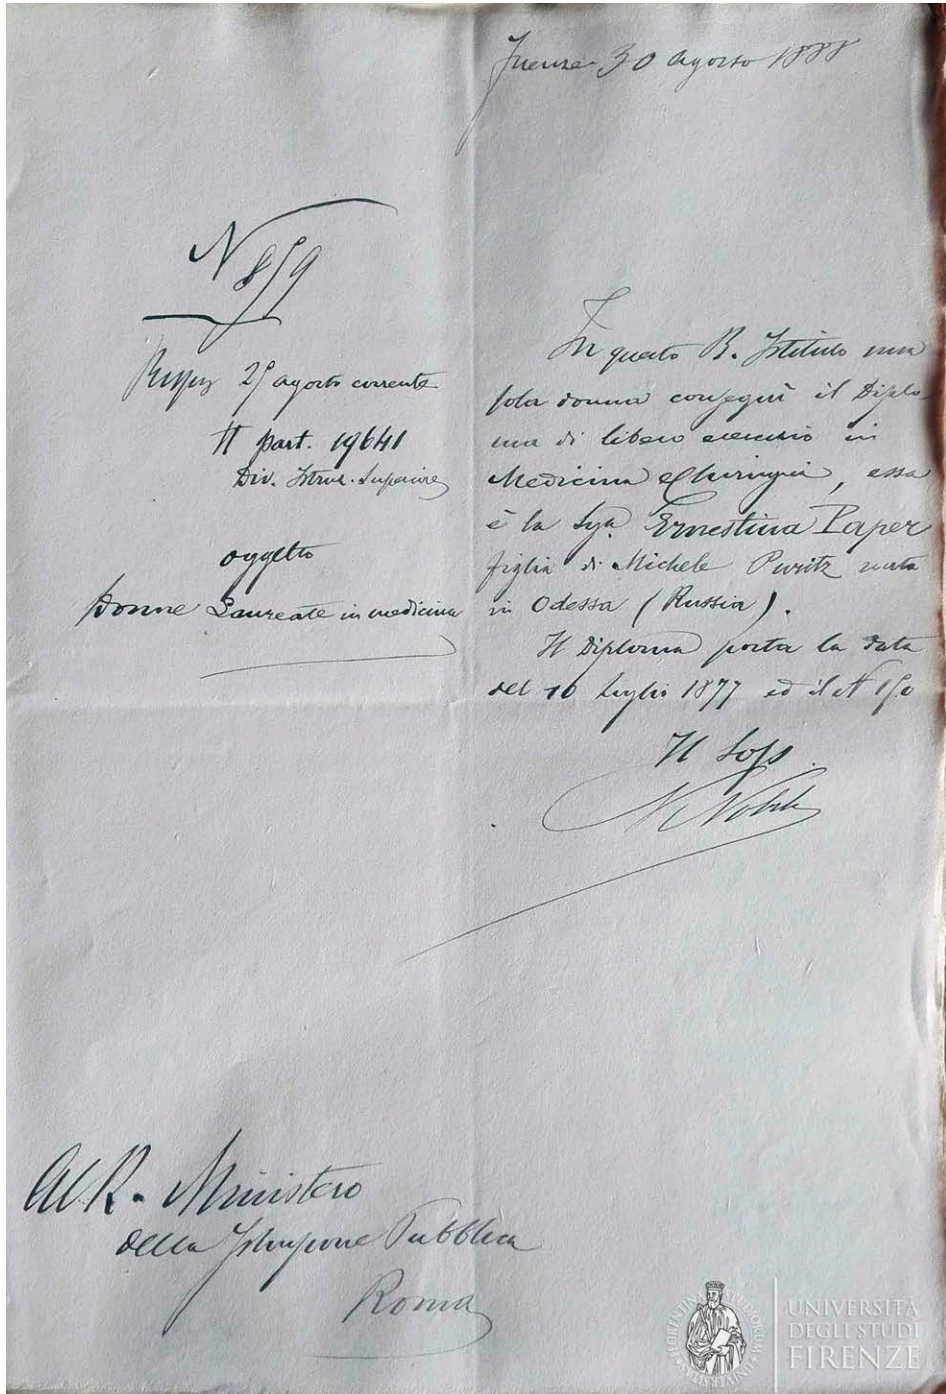 Firenze 30 agosto 1888
N 859
25 agosto corrente
N part. 19641
Div. Istruz. Superiore
oggetto
Donne Laureate in medicina
In questo R. Istituto una
sola donna conseguì il Diplo-
ma di libero esercizio in
Medicina e Chirurgia, essa
è la Sga. Ernestina Paper
figlia di Michele Puritz nata
in Odessa (Russia).
Il Diploma porta la data
del 10 Luglio 1877 ed il N 150
Il Sops.
N Nobili
Al R. Ministero
della Istruzione Pubblica
Roma
FLORENTINA STUDIORUM UNIVERSITAS
UNIVERSITÀ
DEGLI STUDI
FIRENZE